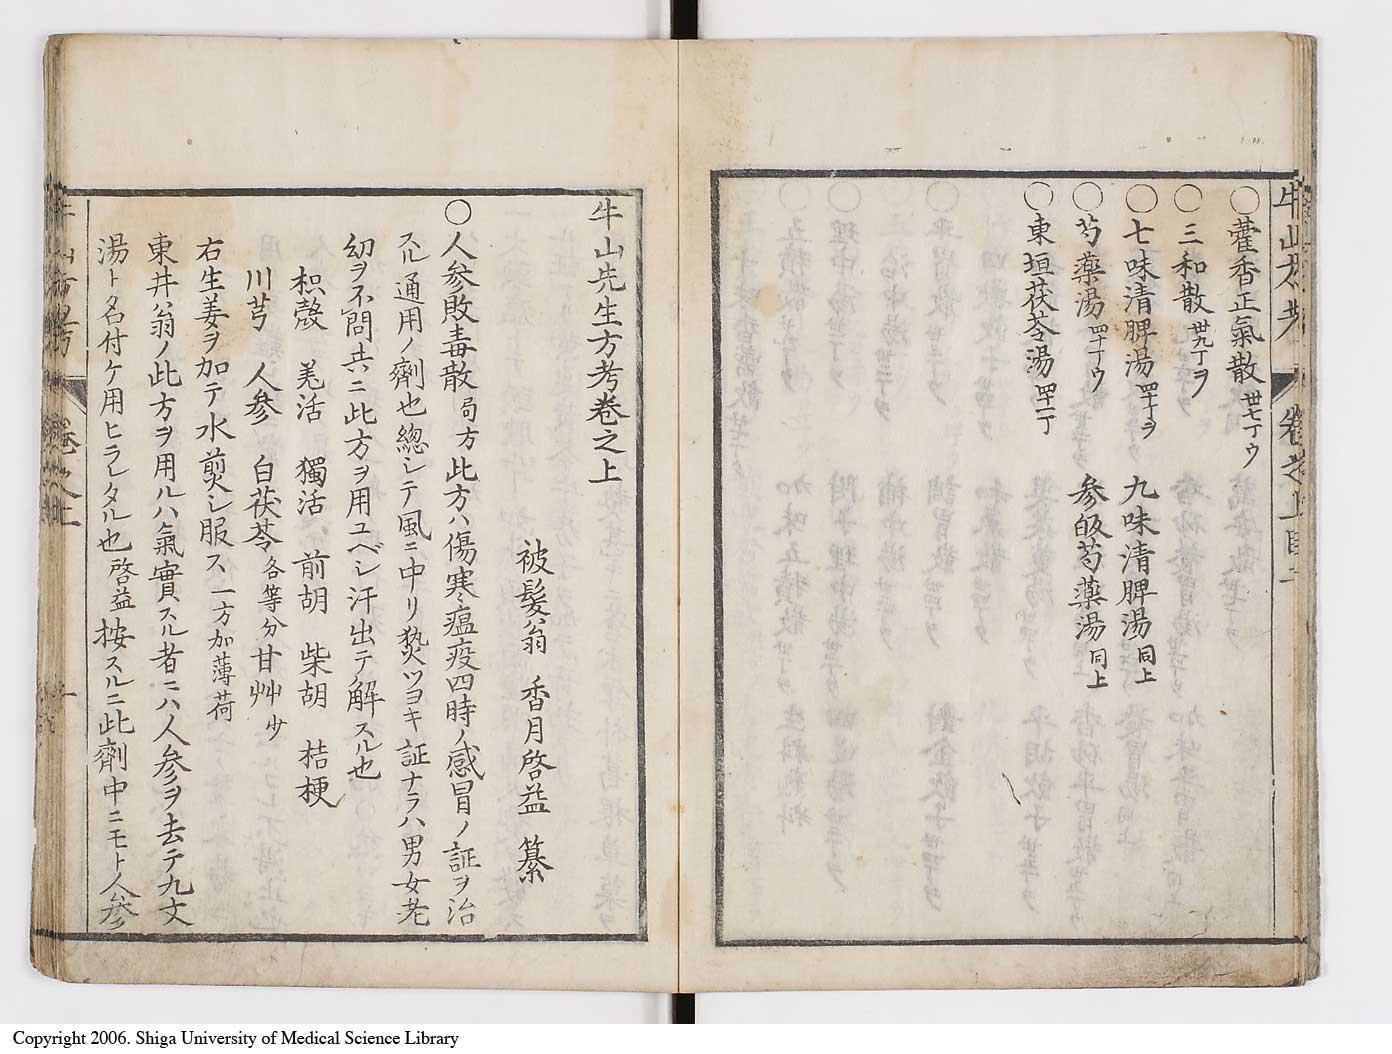 ○藿香正氣散 丗七丁ウ
○三和散 丗九丁ヲ
○七味清脾湯 四十丁ヲ 九味清脾湯 同上
○芍藥湯 四十丁ウ 参皈芍藥湯 同上
○東垣茯苓湯 四十一丁
牛山先生方考巻之上
被髮翁 香月啓益 纂
○人参敗毒散 局方 此方ハ傷寒瘟疫四時ノ感冒ノ証ヲ治
スル通用ノ劑也總シテ風ニ中リ𤍠ツヨキ証ナラハ男女老
幼ヲ不問共ニ此方ヲ用ユベシ汗出テ解スル也
枳殼 羌活 獨活 前胡 柴胡 桔梗
川芎 人参 白茯苓 各等分 甘艸 少
右生姜ヲ加テ水煎シ服ス 一方加薄荷
東井翁ノ此方ヲ用ルハ氣實スル者ニハ人参ヲ去テ九文
湯ト名付ケ用ヒラレタル也 啓益 按スルニ此劑中ニモト人参
Copyright 2006. Shiga University of Medical Science Library